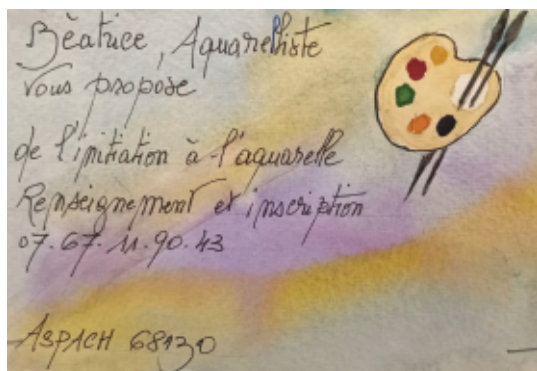 Béatrice, Aquarelliste
vous propose
de l'initiation à l'aquarelle
Renseignement et inscription
07.67.11.90.43
ASPACH 68130